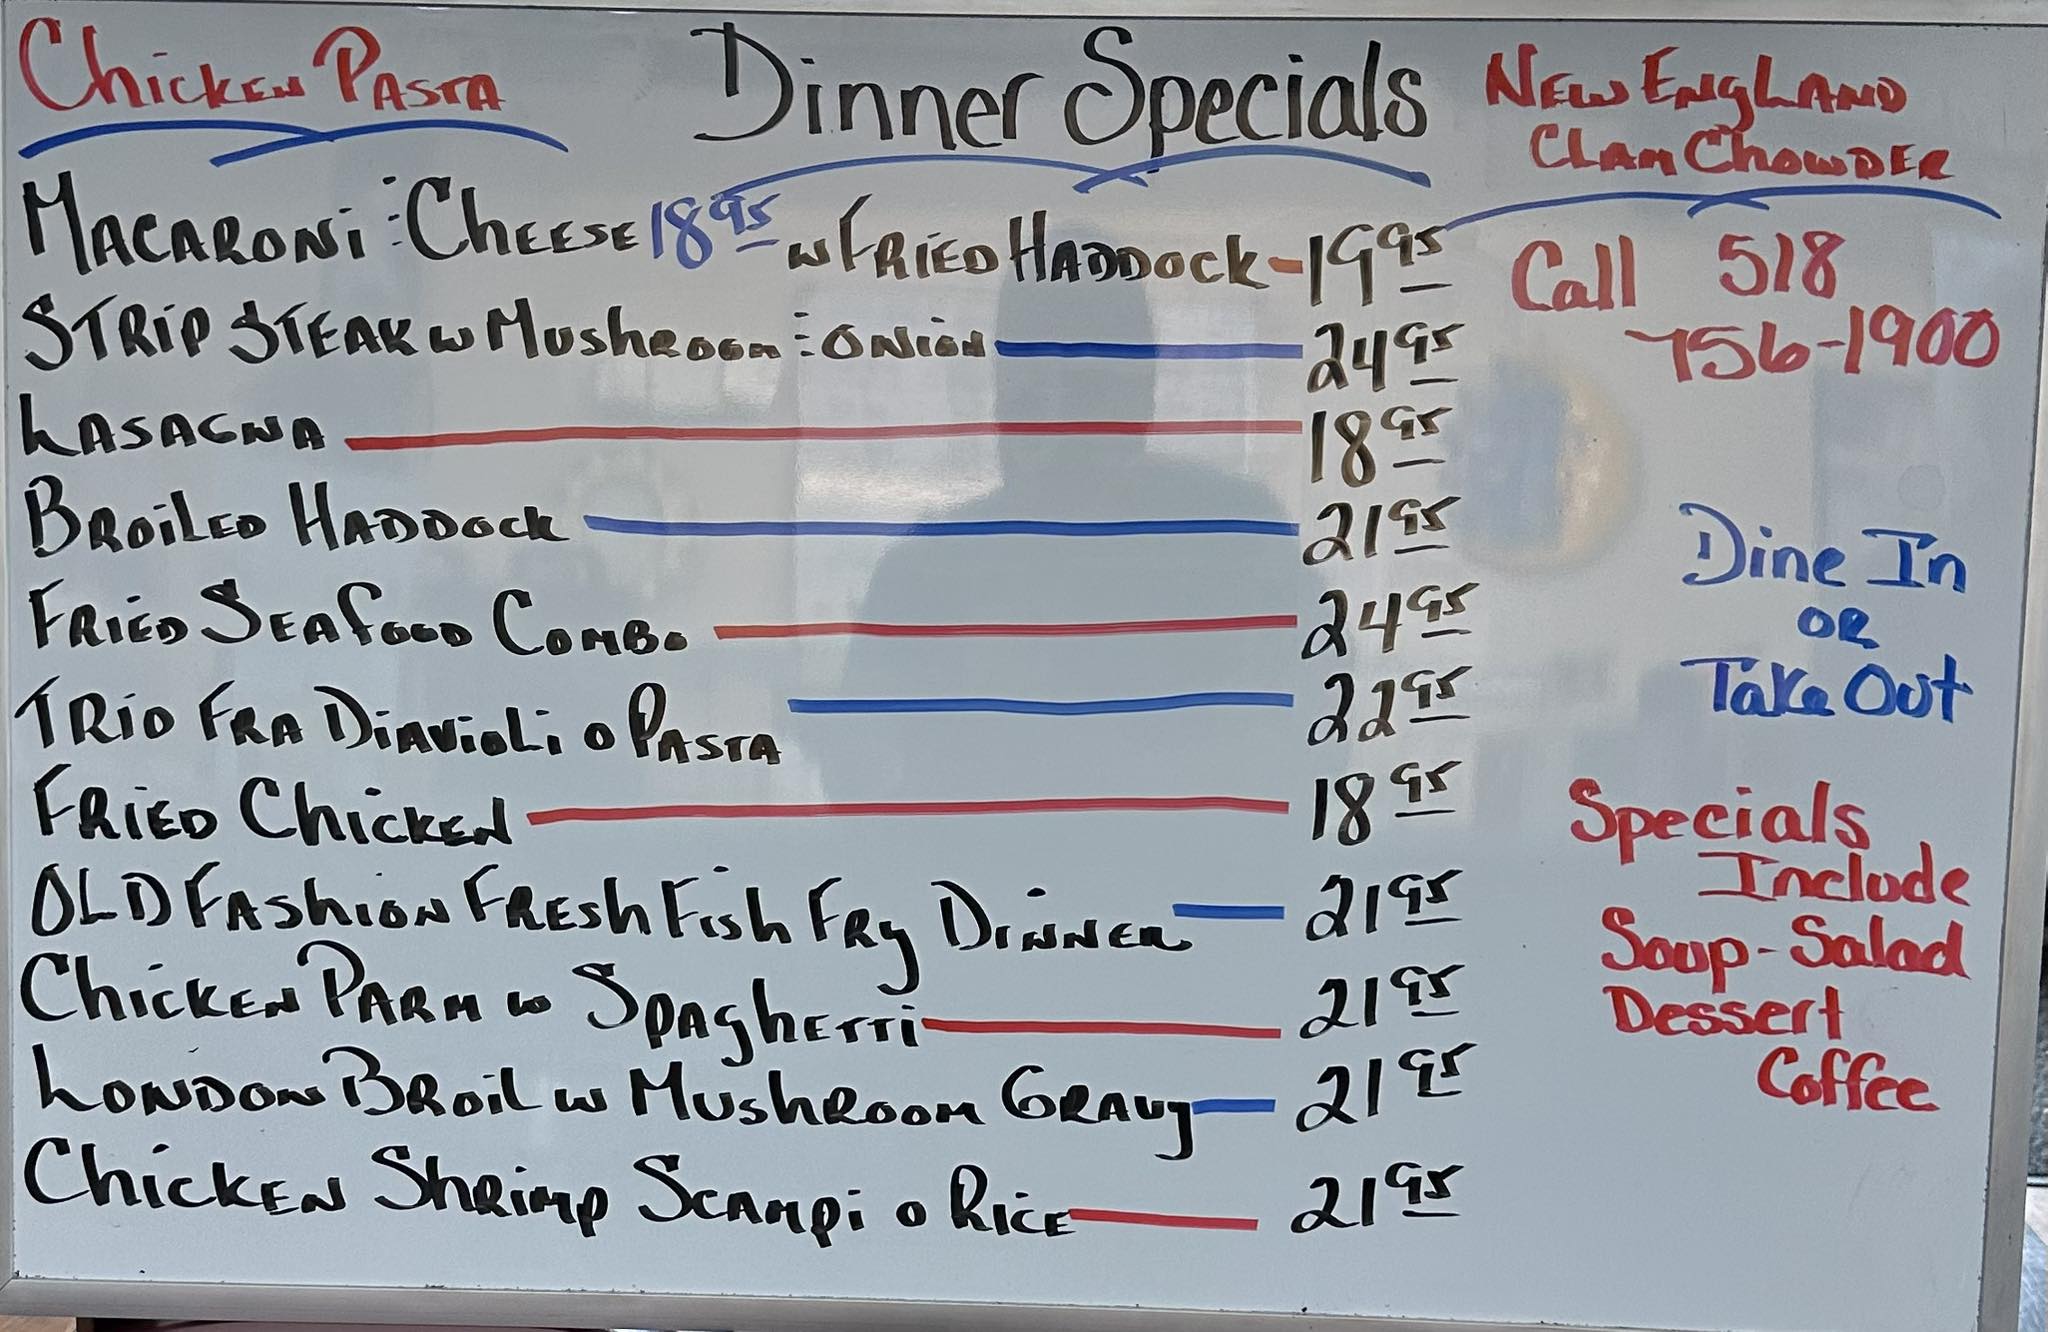 Chicken Pasta
Dinner Specials
New England
Clam Chowder
Macaroni & Cheese 18.95 w/ Fried Haddock - 19.95
Strip Steak w Mushroom & Onion 24.95
Lasagna 18.95
Broiled Haddock 21.95
Fried Seafood Combo 24.95
Trio Fra Diavioli o Pasta 22.95
Fried Chicken 18.95
Old Fashion Fresh Fish Fry Dinner 21.95
Chicken Parm w Spaghetti 21.95
London Broil w Mushroom Gravy 21.95
Chicken Shrimp Scampi o Rice 21.95
Call 518
756-1900
Dine In
or
Take Out
Specials
Include
Soup-Salad
Dessert
Coffee